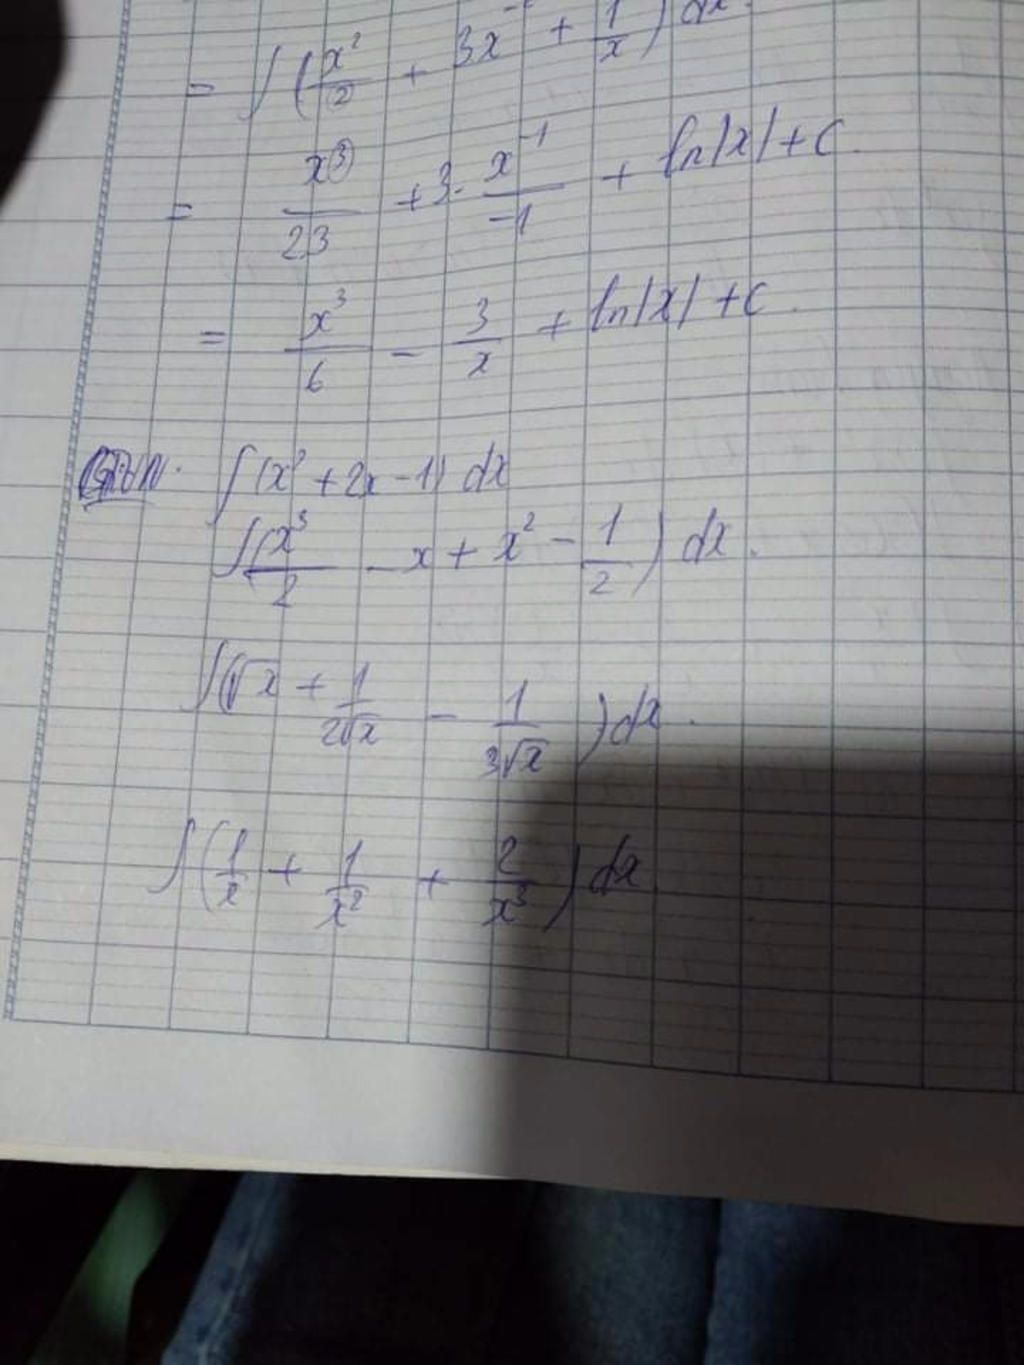 = ∫(x²/2 + 3x⁻ + 1/x) dx
= x³/23 + 3. x⁻¹/-1 + ln|x| + C.
= x³/6 - 3/x + ln|x| + C.
∫(x² + 2x - 1) dx
∫(x³/2 - x + x² - 1/2) dx.
∫(√x + 1/2√x - 1/3√x) dx.
∫(1/x + 1/x² + 2/x³) dx